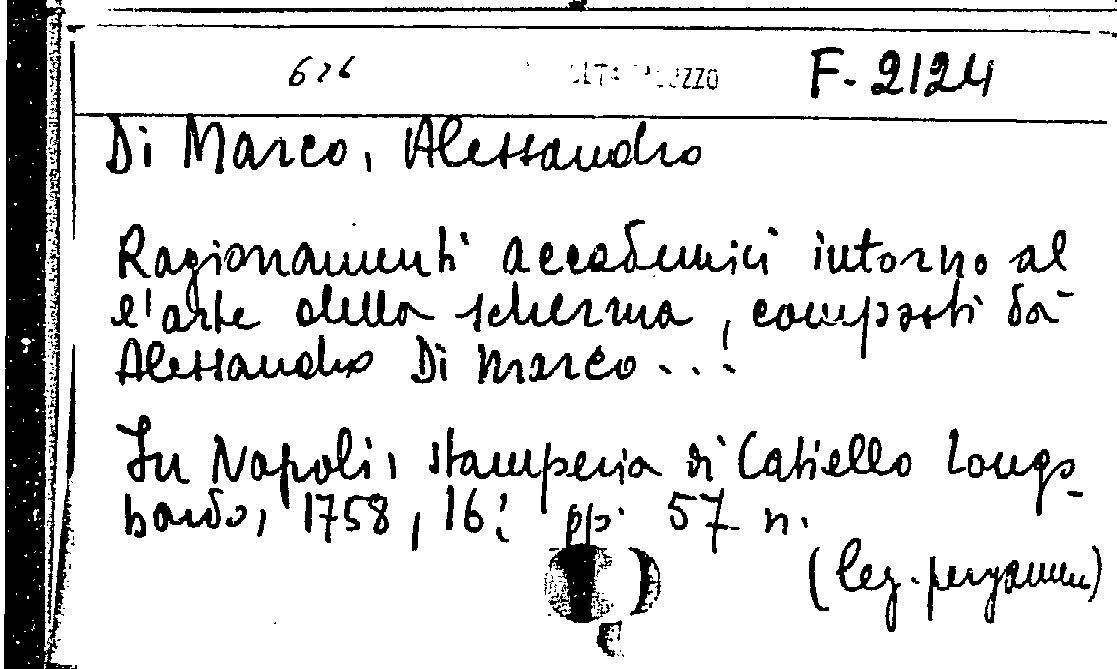 626 F. 2124
Di Marco, Alessandro
Ragionamenti accademici intorno al
l'arte della scherma, composti da
Alessandro Di Marco...
In Napoli, stamperia di Catiello Longo
bardo, 1758, 16° pp. 57 n.
(leg. pergamen)